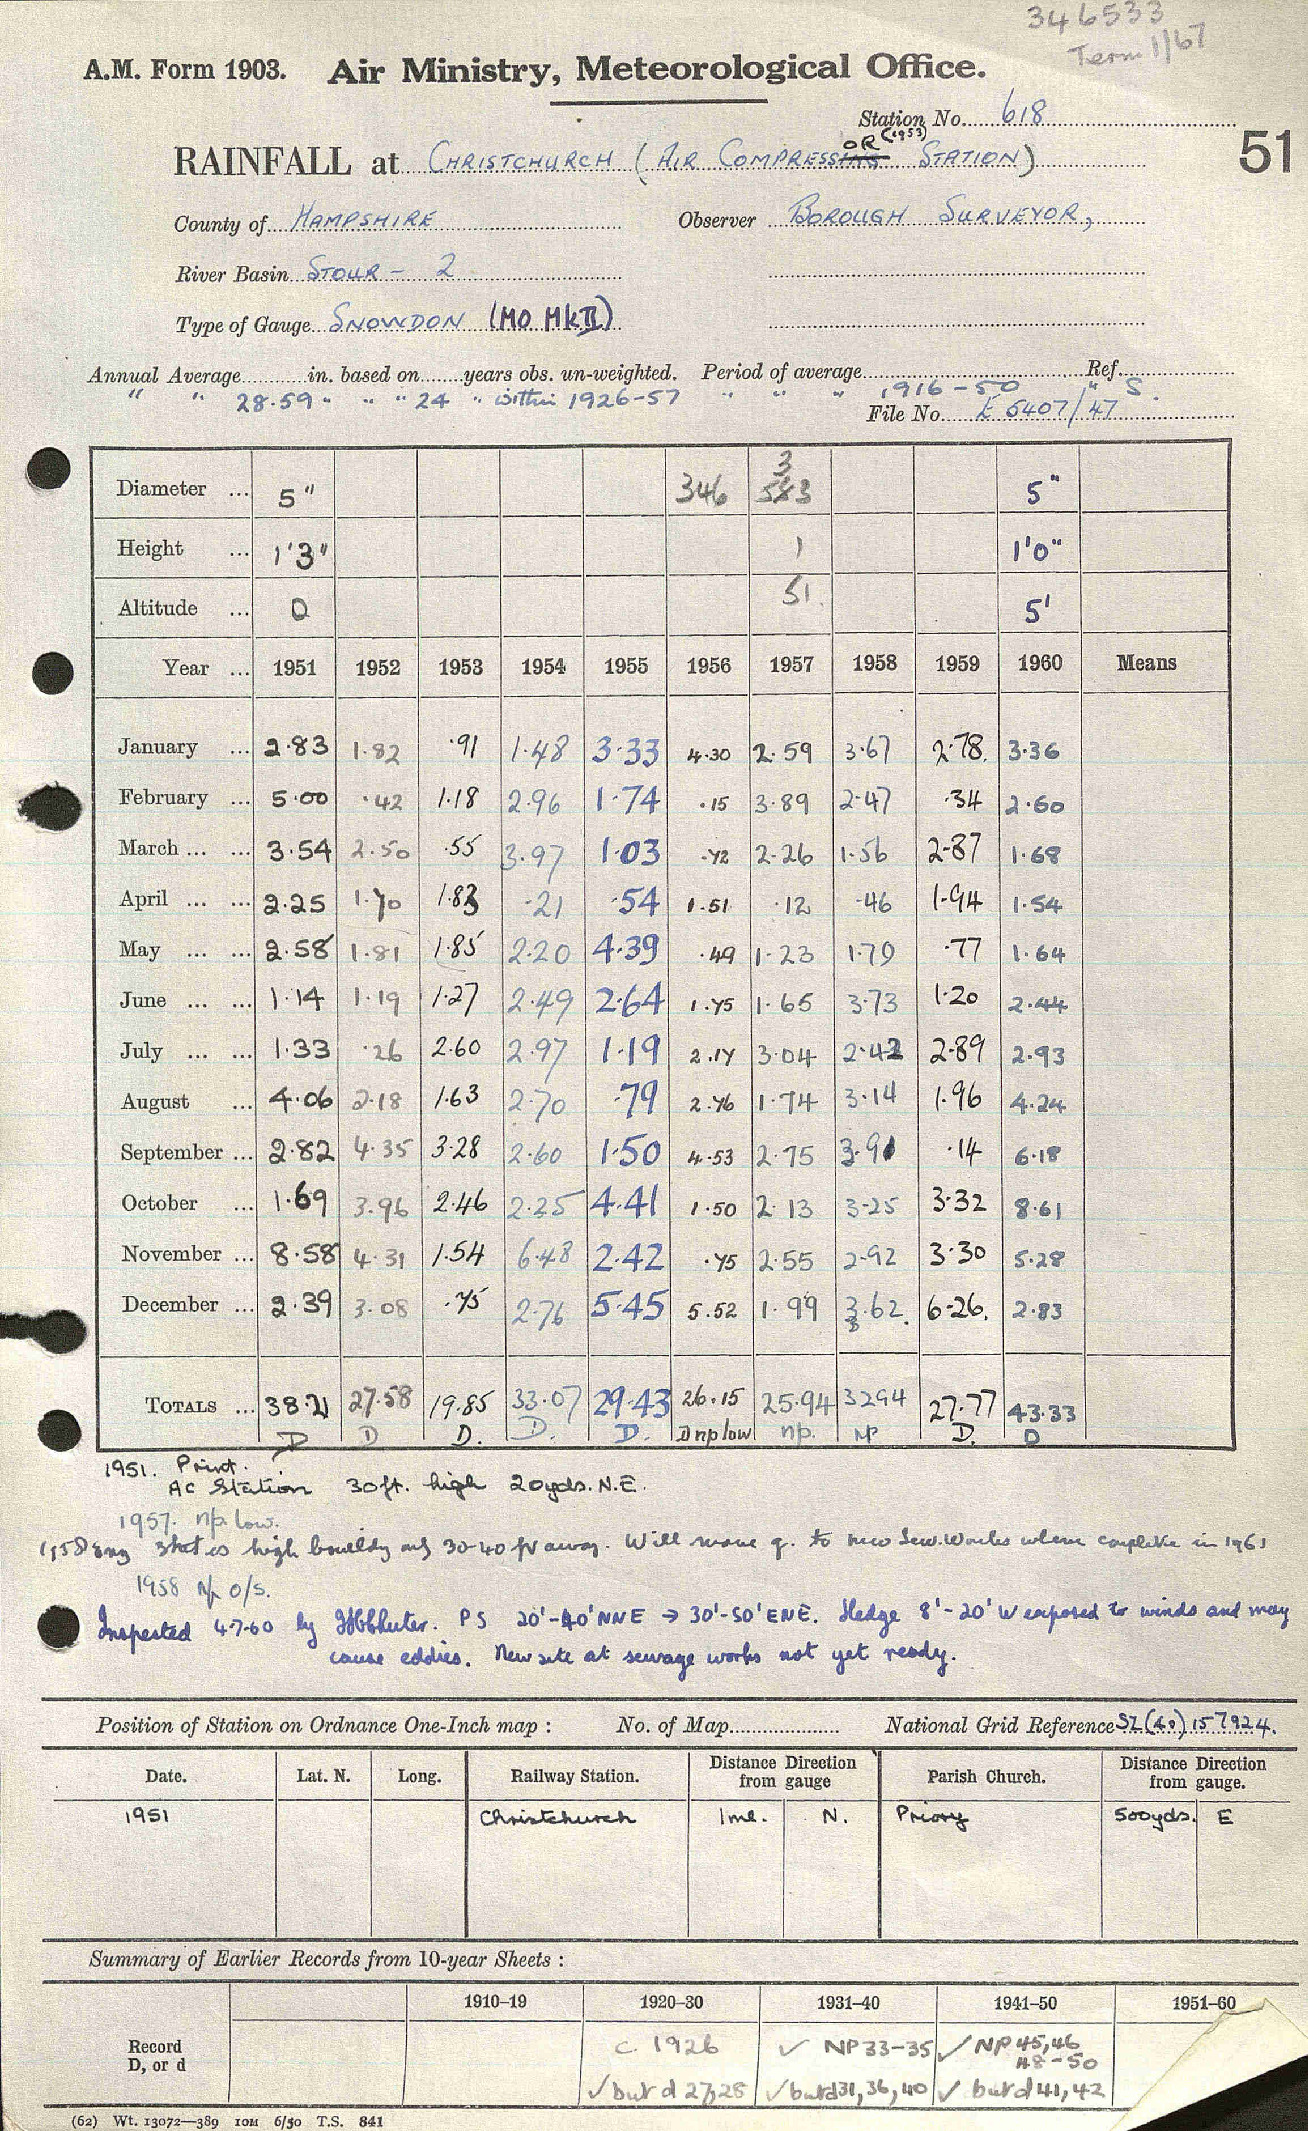 346533
Term 1/67
A.M. Form 1903. Air Ministry, Meteorological Office.
Station No. 618
51
OR (1953)
RAINFALL at CHRISTCHURCH (AIR COMPRESSING STATION)
County of HAMPSHIRE Observer BOROUGH SURVEYOR,
River Basin STOUR - 2
Type of Gauge SNOWDON (MO MkII)
Annual Average in. based on years obs. un-weighted. Period of average Ref.
" " 28.59 " " " 24 " within 1926-57 " " " 1916-50 " S.
File No. E 5407/47
Diameter ... 5" 346 583 3 5"
Height ... 1'3" 1 1'0"
Altitude ... 0 51 5'
Year ... 1951 1952 1953 1954 1955 1956 1957 1958 1959 1960 Means
January ... 2.83 1.82 .91 1.48 3.33 4.30 2.59 3.67 2.78 3.36
February ... 5.00 .42 1.18 2.96 1.74 .15 3.89 2.47 .34 2.60
March ... ... 3.54 2.50 .55 3.97 1.03 .42 2.26 1.56 2.87 1.68
April ... ... 2.25 1.70 1.83 .21 .54 1.51 .12 .46 1.94 1.54
May ... ... 2.58 1.81 1.85 2.20 4.39 .49 1.23 1.79 .77 1.64
June ... ... 1.14 1.19 1.27 2.49 2.64 1.75 1.65 3.73 1.20 2.44
July ... ... 1.33 .26 2.60 2.97 1.19 2.17 3.04 2.42 2.89 2.93
August ... 4.06 2.18 1.63 2.70 .79 2.76 1.74 3.14 1.96 4.24
September ... 2.82 4.35 3.28 2.60 1.50 4.53 2.75 3.91 .14 6.18
October ... 1.69 3.96 2.46 2.25 4.41 1.50 2.13 3.25 3.32 8.61
November ... 8.58 4.31 1.54 6.48 2.42 .75 2.55 2.92 3.30 5.28
December ... 2.39 3.08 .75 2.76 5.45 5.52 1.99 3.62 6.26 2.83
TOTALS ... 38.21 27.58 19.85 33.07 29.43 26.15 25.94 32.94 27.77 43.33
D D D. D. D. D np low np. NP D. D
1951. Print.
AC Station 30ft. high 20yds. N.E.
1957. np low.
high away. Will move g. to new Sew. Works when complete in 1961
1958 np o/s.
Inspected 4.7.60 by PS 20'-40' NNE → 30'-50' ENE. Hedge 8'-20' W exposed to winds and may
cause eddies. New site at sewage works not yet ready.
Position of Station on Ordnance One-Inch map : No. of Map National Grid Reference SZ(40) 157924.
Date. Lat. N. Long. Railway Station. Distance from gauge Direction Parish Church. Distance Direction from gauge.
1951 Christchurch 1ml. N. Priory 500yds. E
Summary of Earlier Records from 10-year Sheets :
1910–19 1920–30 1931–40 1941–50 1951–60
Record D, or d c 1926 ✓ NP 33-35 ✓ NP 45,46 48-50
✓ but d 27,28 ✓ but d 31, 36, 40 ✓ but d 41, 42
(62) Wt. 13072—389 10M 6/50 T.S. 841